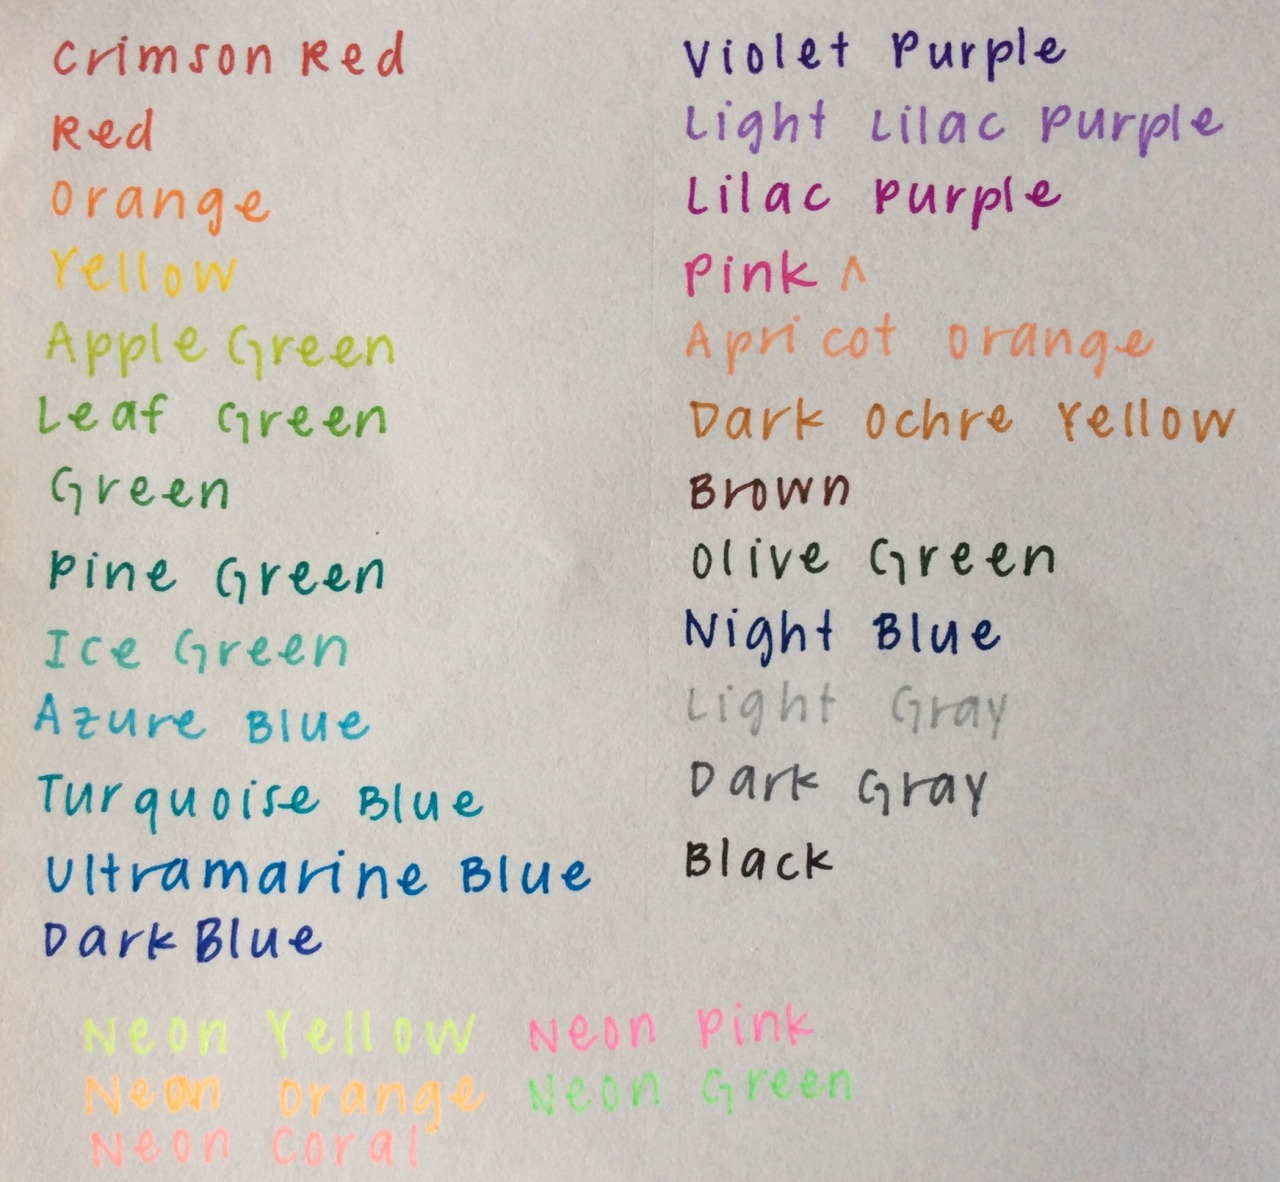 Crimson Red
Red
Orange
Yellow
Apple Green
Leaf Green
Green
Pine Green
Ice Green
Azure Blue
Turquoise Blue
Ultramarine Blue
Dark Blue
Violet Purple
Light Lilac Purple
Lilac Purple
Pink ^
Apricot Orange
Dark Ochre Yellow
Brown
Olive Green
Night Blue
Light Gray
Dark Gray
Black
Neon Yellow
Neon Orange
Neon Coral
Neon Pink
Neon Green